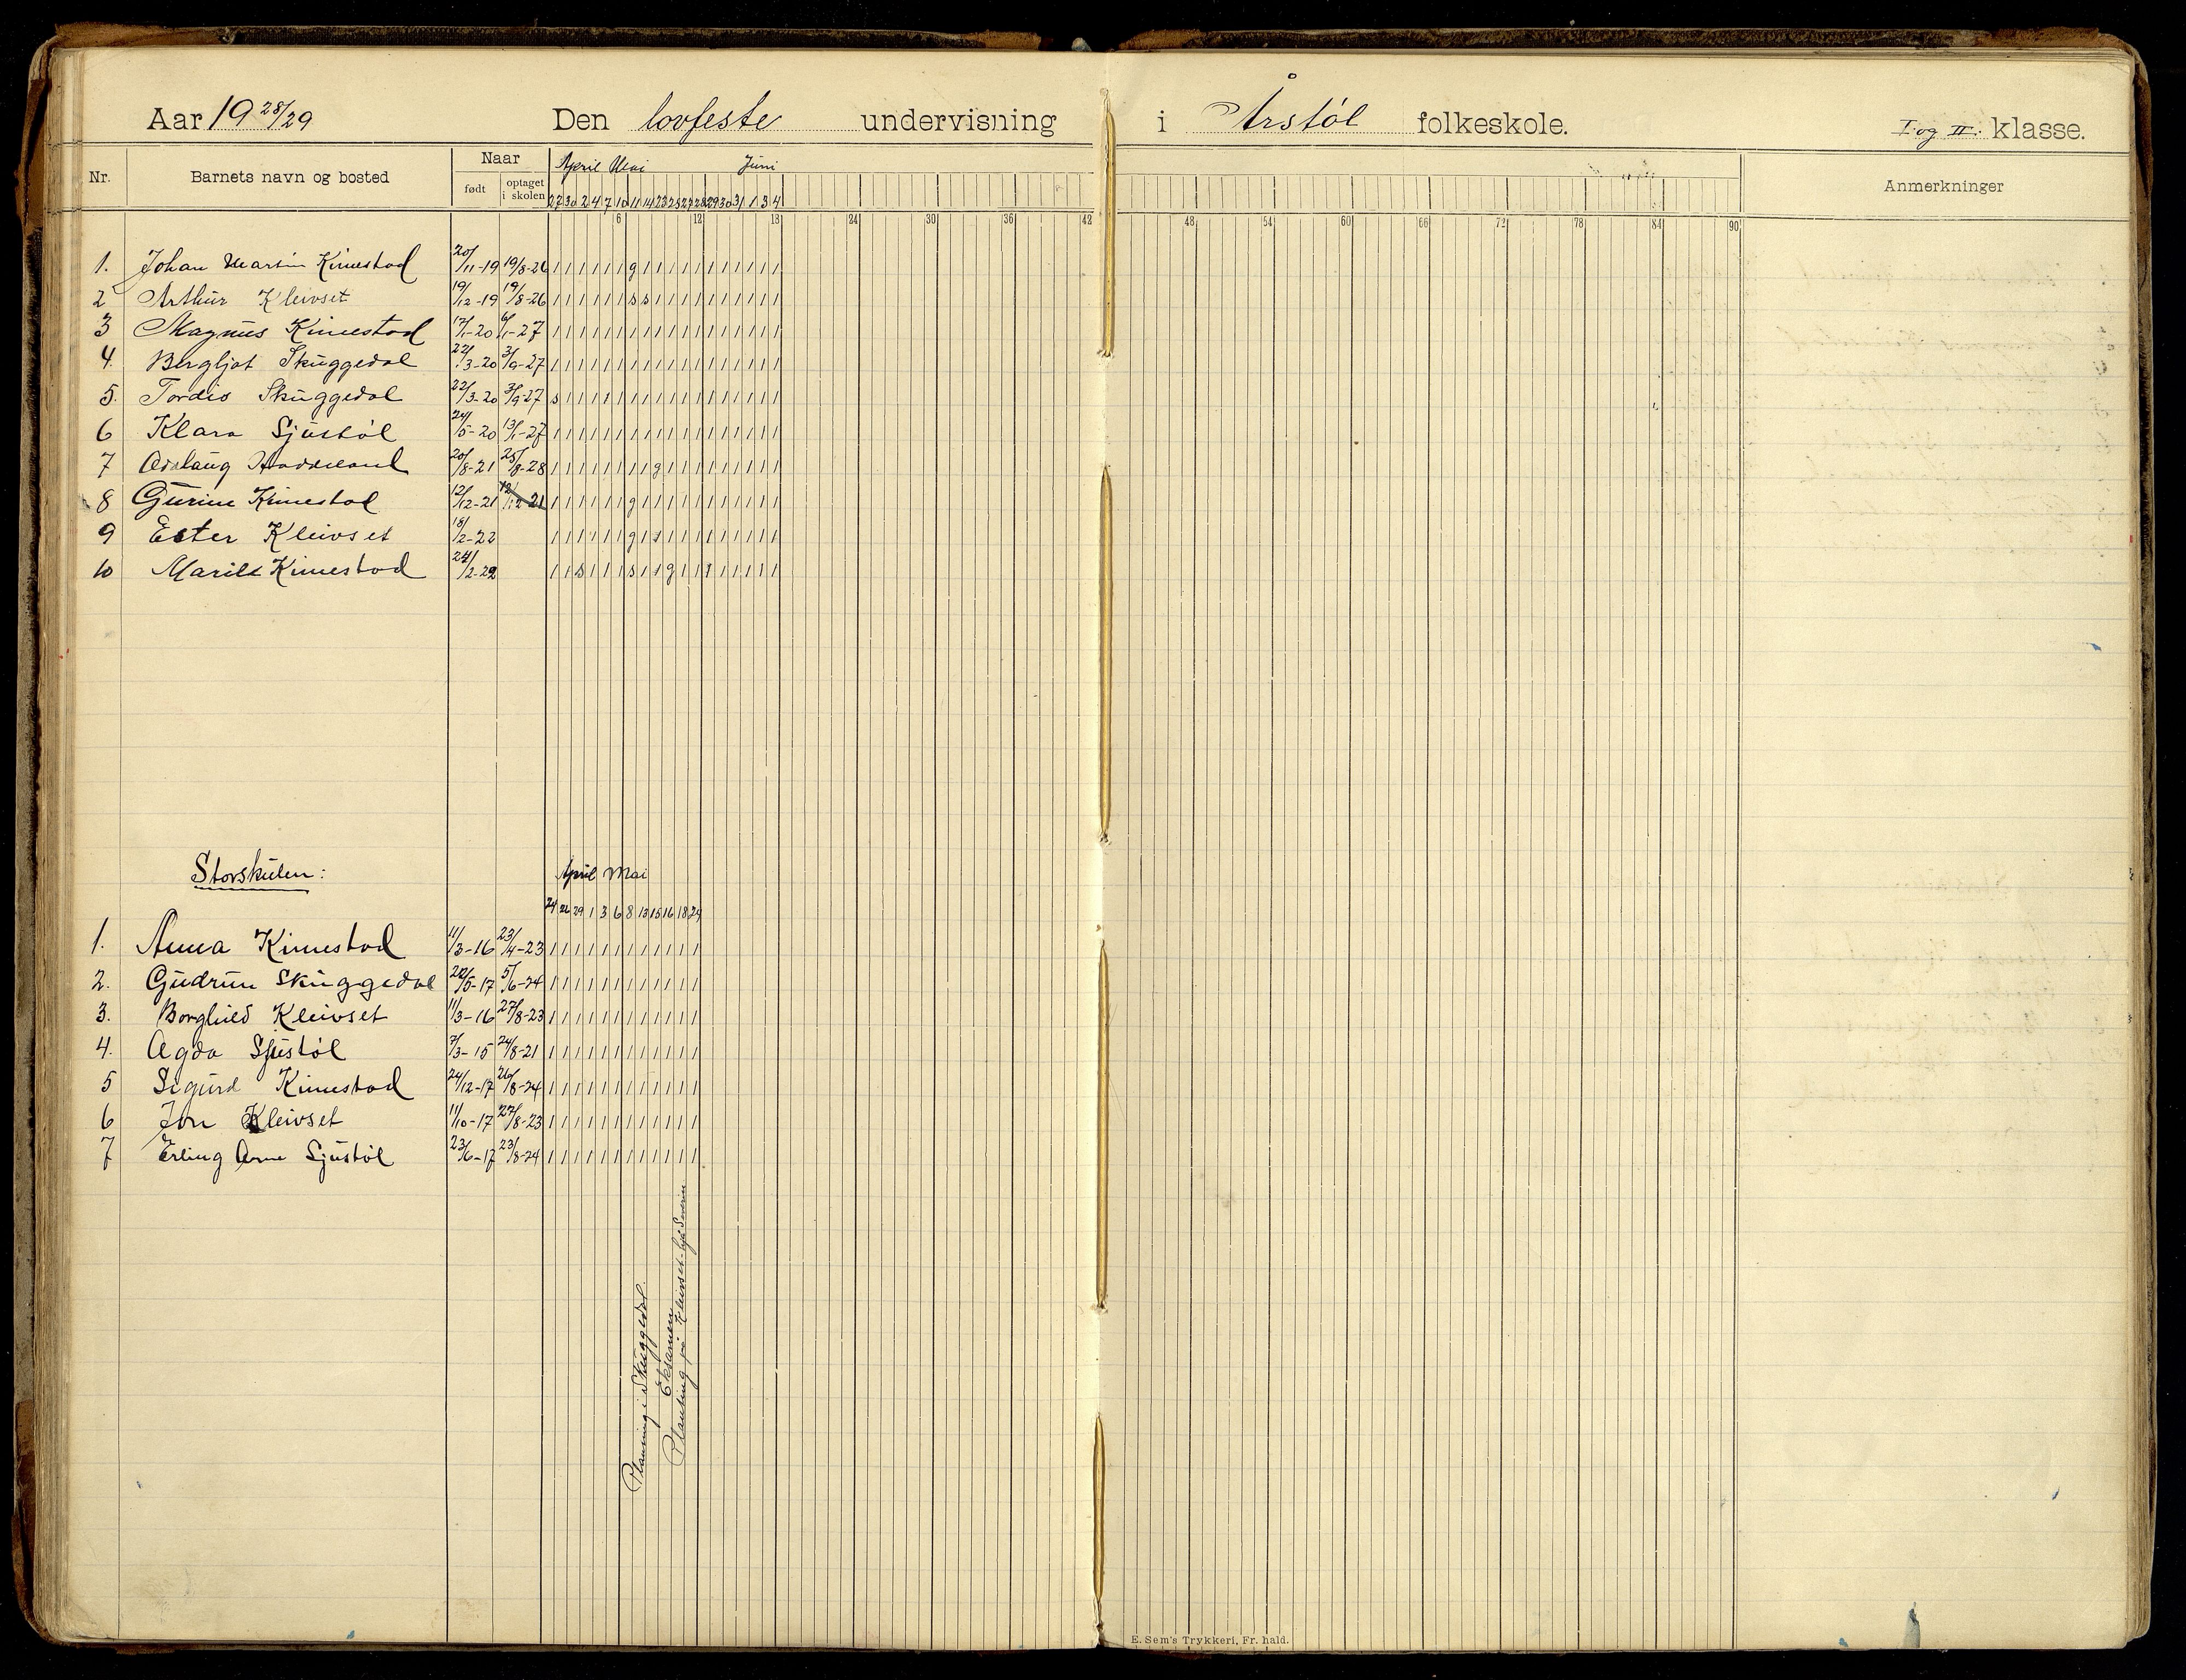 Aar 19 28/29 Den lovfeste undervisning i Årstøl folkeskole. I. og II. klasse.
Nr. Barnets navn og bosted Naar født optaget i skolen April Mai Juni Anmerkninger
27 30 2 4 7 10 11 14 23 25 27 28 29 30 31 1 3 4
6 12 18 24 30 36 42 48 54 60 66 72 78 84 90
1. Johan Martin Kimestad 20/11-19 19/8-26 | | | | | | g | | | | | | | | | | |
2 Arthur Kleivset 19/12-19 19/8-26 | | | | | | s s | | | | | | | | | |
3 Magnus Kimestad 17/1-20 6/1-27 | | | | | | | | | | | | | | | | | |
4. Bergljot Skuggedal 22/3-20 3/9-27 | | | | | | | | | | | | | | | | | |
5. Tordis Skuggedal 22/3-20 3/9-27 s | | | | | | | | | | | | | | | | |
6 Klara Sjustøl 24/5-20 13/1-27 | | | | | | | | | | | | | | | | | |
7 Aslaug 20/8-21 25/8-28 | | | | | | | | g | | | | | | | | |
8 Gurine Kimestad 12/12-21 12/12-21 | | | | | | g | | | | | | | | | | |
9 Ester Kleivset 18/2-22 | | | | | | g | s | | | | | | | | |
10 Marile Kimestad 24/2-22 | | s | | | s | | g | | | | | | | |
Storskulen:
April Mai
24 26 29 1 3 6 8 13 15 16 18 24
1. Anna Kimestad 11/3-16 23/4-23 | | | | | | | | | | | |
2. Gudrun Skuggedal 22/5-17 5/6-24 | | | | | | | | | | | |
3. Borghild Kleivset 11/3-16 27/8-23 | | | | | | | | | | | |
4. Agda Sjustøl 7/3-15 24/8-21 | | | | | | | | | | | |
5 Sigurd Kimestad 24/12-17 26/8-24 | | | | | | | | | | | |
6 Jon Kleivset 11/10-17 27/8-23 | | | | | | | | | | | |
7 Erling Arne Sjustøl 23/6-17 23/8-24 | | | | | | | | | | | |
Planting i Skuggedal.
Eksamen
Planting på Kleivset - hjå Severin
E. Sem's Trykkeri, Fr. hald.